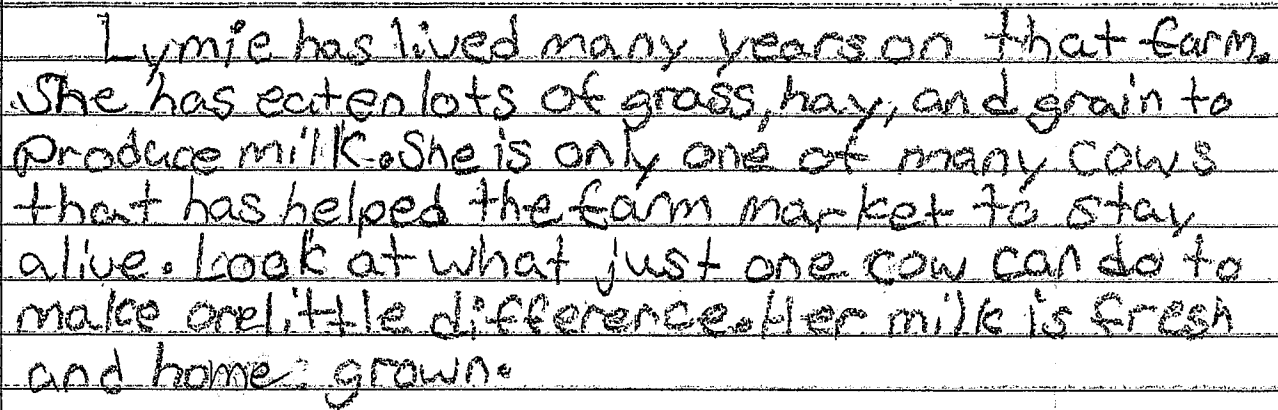 Lymie has lived many years on that farm.
She has eaten lots of grass, hay, and grain to
produce milk. She is only one of many cows
that has helped the farm market to stay
alive. Look at what just one cow can do to
make one little difference. Her milk is fresh
and home grown.